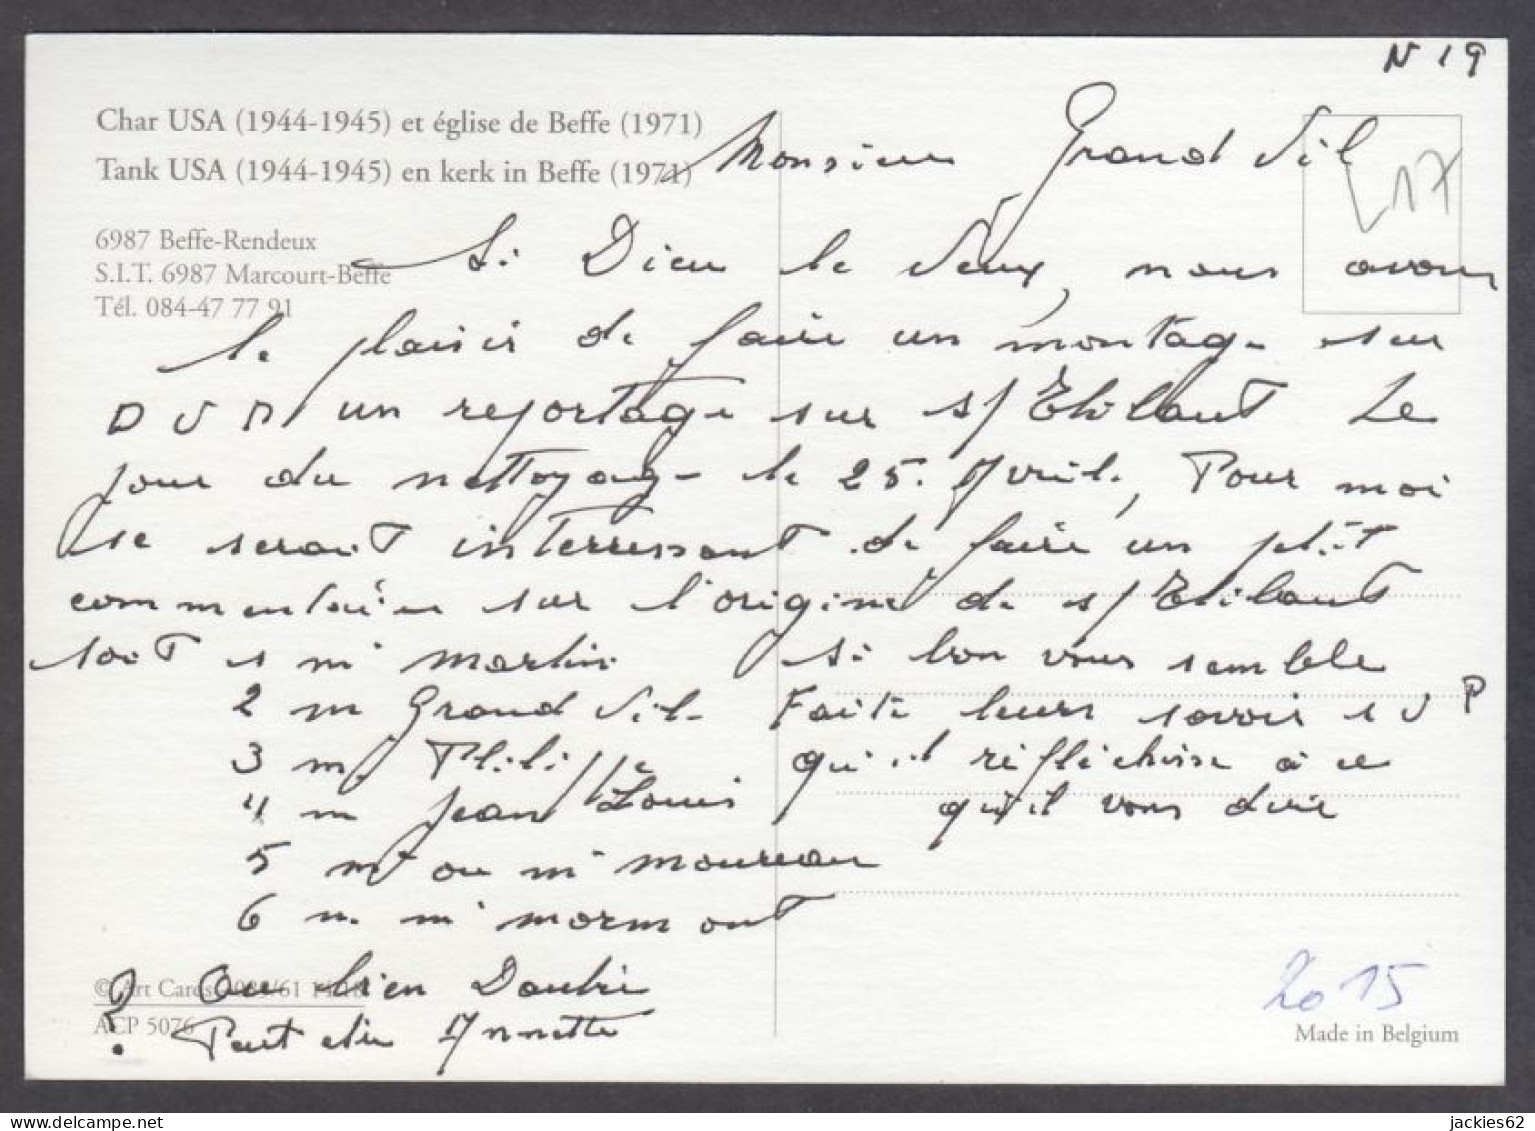 N 19
Char USA (1944-1945) et église de Beffe (1971)
Tank USA (1944-1945) en kerk in Beffe (1971)
6987 Beffe-Rendeux
S.I.T. 6987 Marcourt-Beffe
Tél. 084-47 77 91
Monsieur Grand Vil
L17
Si Dieu le veux, nous avons
le plaisir de faire un montage sur
DVD, un reportage sur s/Thibaut Le
jour du nettoyage le 25. Avril., Pour moi
se serait interressant de faire un petit
commentaire sur l'origine de s/Thibaut
soit 1 mr Martin
2 m Grand Vil
3 m. Philippe
4 m Jean Louis
5 mr ou mr Moureau
6 m. mr Mormont
? Ou bien
Peut etre Annette
si bon vous semble
Faite leurs savoir s v P
qu'il réfléchisse à ce
qu'il vons dire
© Art Cards
ACP 5076
2015
Made in Belgium
jackies62